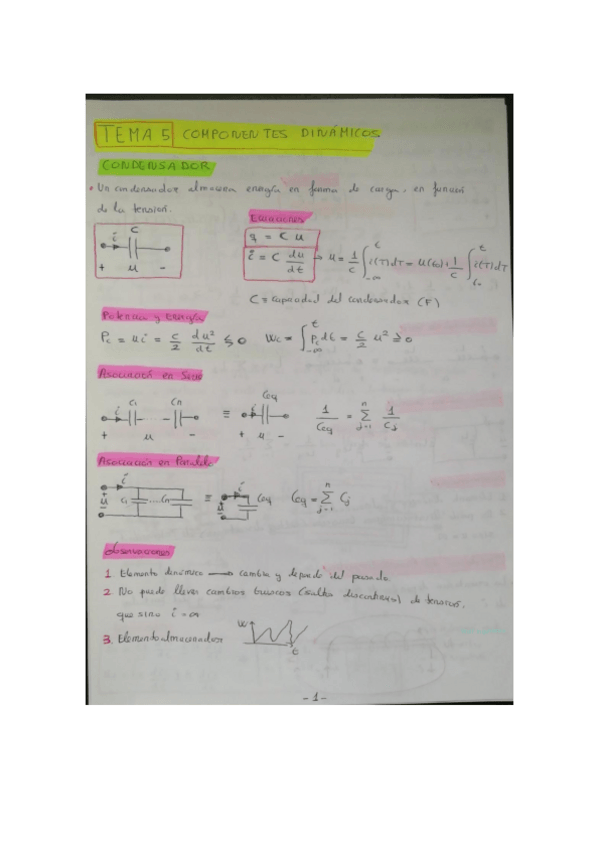 TEMA 5 COMPONENTES DINÁMICOS
CONDENSADOR
• Un condensador almacena energía en forma de carga, en función
de la tensión.
Ecuaciones
C
i
+ u -
q = C u
i = C du/dt → u = 1/C ∫_{-∞}^{t} i(T)dT = u(t₀) + 1/C ∫_{t₀}^{t} i(T)dT
C ≡ capacidad del condensador (F)
Potencia y Energía
Pc = u i = C/2 du²/dt ≶ 0 Wc = ∫_{-∞}^{t} Pc dt = C/2 u² ≥ 0
Asociación en Serie
i C₁ Cn ≡ i Ceq 1/Ceq = Σ_{j=1}^{n} 1/Cj
+ u - + u -
Asociación en Paralelo
i + u - C₁ .... Cn ≡ i u Ceq Ceq = Σ_{j=1}^{n} Cj
Observaciones
1 Elemento dinámico → cambia y depende del pasado
2 No puede llevar cambios bruscos (saltos discontinuos) de tensión,
que sino i = ∞
3. Elemento almacenador W t
- 1 -